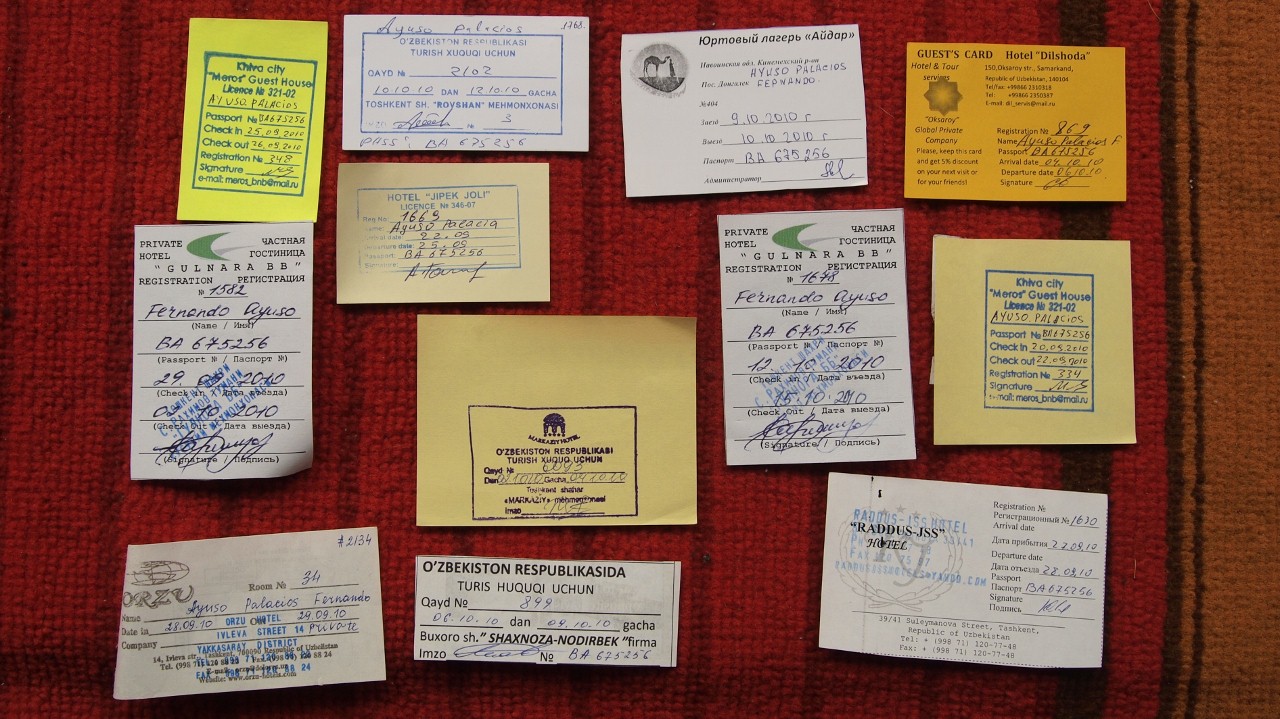 Khiva city
"Meros" Guest House
Licence № 321-02
AYUSO PALACIOS
Passport № BA675256
Check in 25.09.2010
Check out 26.09.2010
Registration № 348
Signature
e-mail: meros_bnb@mail.ru
Ayuso Palacios 1768.
O'ZBEKISTON RESPUBLIKASI
TURISH XUQUQI UCHUN
QAYD № 2102
10.10.10 DAN 12.10.10 GACHA
TOSHKENT SH. "ROVSHAN" MEHMONXONASI
№ 3
PASS: BA 675256
Юртовый лагерь «Айдар»
Навоинская обл. Кинемехский р-он
Пос. Донгелек
AYUSO PALACIOS
FERNANDO.
№404
Заезд 9.10.2010 г
Выезд 10.10.2010 г
Паспорт BA 675256
Администратор
GUEST'S CARD Hotel "Dilshoda"
Hotel & Tour
services
150,Oksaroy str., Samarkand,
Republic of Uzbekistan, 140104
Tel/fax: +99866 2310318
Tel: +99866 2350387
E-mail: dil_servis@mail.ru
"Oksaroy"
Global Private
Company
Please, keep this card
and get 5% discount
on your next visit or
for your friends!
Registration № 869
Name Ayuso Palacios F
Passport BA675256
Arrival date 04.10.10
Departure date 06.10.10
Signature
HOTEL "JIPEK JOLI"
LICENCE № 346-07
Reg No: 1669
Name: Ayuso Palacia
Arrival date: 22.09
Departure date: 25.09
Passport: BA675256
Signature:
PRIVATE ЧАСТНАЯ
HOTEL ГОСТИНИЦА
"GULNARA BB"
REGISTRATION РЕГИСТРАЦИЯ
№ 1582
Fernando Ayuso
(Name / Имя)
BA 675256
(Passport № / Паспорт №)
29. 2010
(Check in / Дата въезда)
10 2010
(Check Out / Дата выезда)
(Signature / Подпись)
PRIVATE ЧАСТНАЯ
HOTEL ГОСТИНИЦА
"GULNARA BB"
REGISTRATION РЕГИСТРАЦИЯ
№ 1678
Fernando Ayuso
(Name / Имя)
BA 675256
(Passport № / Паспорт №)
12. 10. 2010
(Check in / Дата въезда)
15.10.2010
(Check Out / Дата выезда)
(Signature / Подпись)
Khiva city
"Meros" Guest House
Licence № 321-02
AYUSO PALACIOS
Passport № BA675256
Check in 20.09.2010
Check out 22.09.2010
Registration № 334
Signature
e-mail: meros_bnb@mail.ru
MARKAZIY HOTEL
O'ZBEKISTON RESPUBLIKASI
TURISH XUQUQ UCHUN
Qayd № 6093
Dan Gacha 04.10.10
Toshkent shahar
«MARKAZIY» mehmonxonasi
Imzo
#2134
ORZU
Room № 34
Name Ayuso Palacios Fernando
Date in 28.09.10 Out 29.09.10
Company private
ORZU HOTEL
IVLEVA STREET 14
YAKKASARAY DISTRICT
14, Ivleva str., Tashkent, 700090 Republic of Uzbekistan
Website: www.orzu-hotels.com
O'ZBEKISTON RESPUBLIKASIDA
TURIS HUQUQI UCHUN
Qayd № 899
06.10.10 dan 09.10.10 gacha
Buxoro sh." SHAXNOZA-NODIRBEK "firma
Imzo № BA 675256
RADDUS-JSS HOTEL
"RADDUS-JSS"
HOTEL
Registration №
Регистрационный № 1630
Arrival date
Дата прибытия 27.09.10
Departure date
Дата отъезда 28.09.10
Passport
Паспорт BA675256
Signature
Подпись
39/41 Suleymanova Street, Tashkent,
Republic of Uzbekistan
Tel: + (998 71) 120-77-48
Fax: + (998 71) 120-77-48